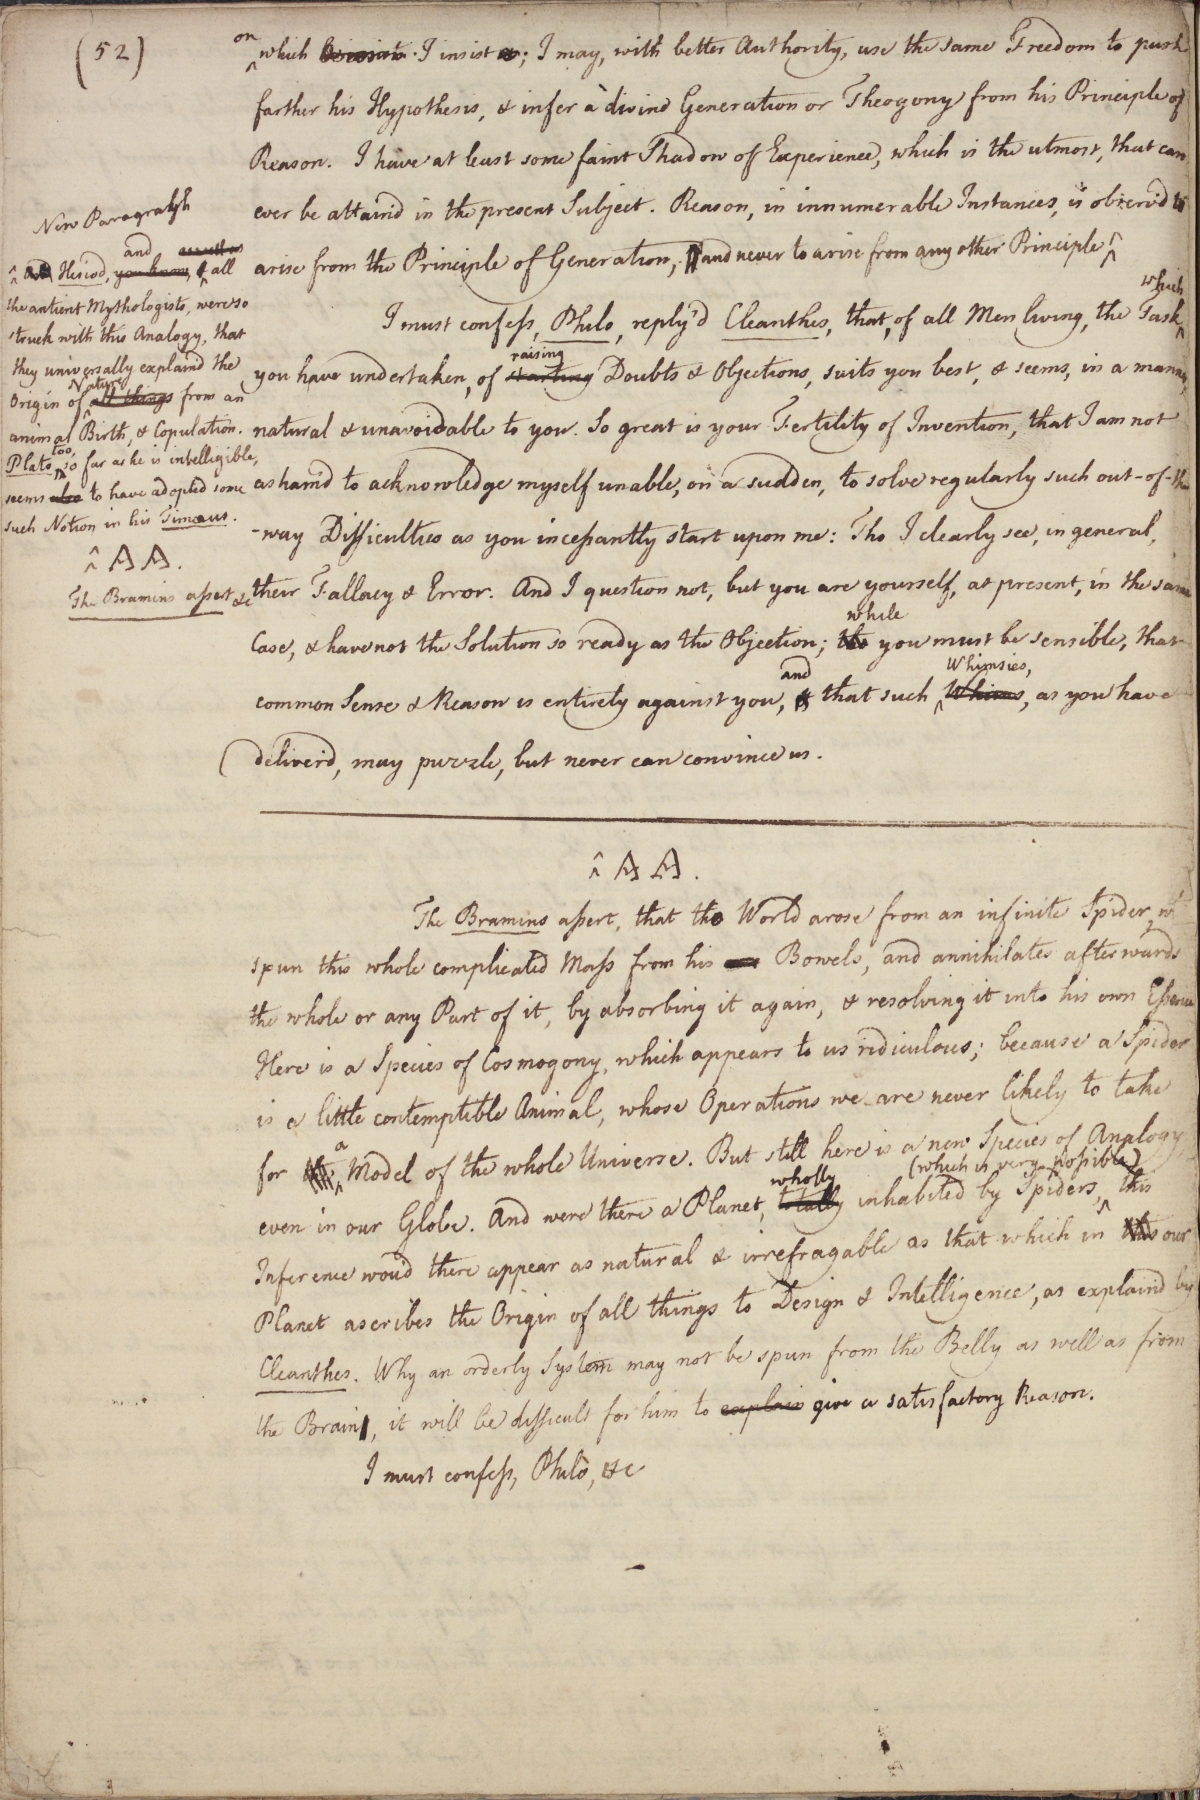 (52)
on
which I insist; I may, with better Authority, use the same Freedom to push
farther his Hypothesis, & infer a divine Generation or Theogony from his Principle of
Reason. I have at least some faint Shadow of Experience, which is the utmost, that can
ever be attain'd in the present Subject. Reason, in innumerable Instances, is observ'd to
arise from the Principle of Generation, and never to arise from any other Principle ^
New Paragraph
and
^ Hesiod, you know, & all
the antient Mythologists, were so
struck with this Analogy, that
they universally explain'd the
Nature
Origin of all things from an
animal Birth, & Copulation.
too,
Plato, so far as he is intelligible,
seems also to have adopted some
such Notion in his Timæus.
^ AA.
The Bramins assert &c
which
I must confess, Philo, reply'd Cleanthes, that, of all Men living, the Task,
raising
you have undertaken, of starting Doubts & Objections, suits you best, & seems, in a manner,
natural & unavoidable to you. So great is your Fertility of Invention, that I am not
asham'd to acknowledge myself unable, on a sudden, to solve regularly such out-of-the
-way Difficulties as you incessantly start upon me: Tho I clearly see, in general,
their Fallacy & Error. And I question not, but you are yourself, at present, in the same
while
Case, & have not the Solution so ready as the Objection; tho you must be sensible, that
and Whimsies,
common Sense & Reason is entirely against you, & that such Whims, as you have
deliver'd, may puzzle, but never can convince us.
^ AA.
The Bramins assert, that the World arose from an infinite Spider, who
spun this whole complicated Mass from his Bowels, and annihilates afterwards
the whole or any Part of it, by absorbing it again, & resolving it into his own Essence
Here is a Species of Cosmogony, which appears to us ridiculous; because a Spider
is a little contemptible Animal, whose Operations we are never likely to take
a
for Model of the whole Universe. But still here is a new Species of Analogy
wholly (which is very possible)
even in our Globe. And were there a Planet, totally inhabited by Spiders, this
Inference wou'd there appear as natural & irrefragable as that which in this our
Planet ascribes the Origin of all things to Design & Intelligence, as explain'd by
Cleanthes. Why an orderly System may not be spun from the Belly as well as from
the Brain, it will be difficult for him to explain give a satisfactory Reason.
I must confess, Philo, &c